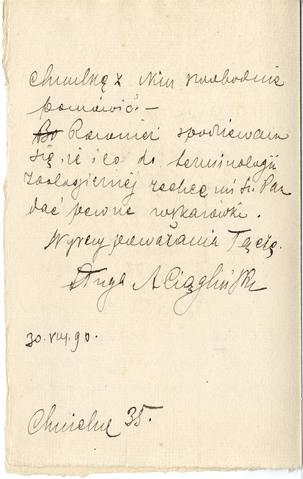 chwilkę z Nim swobodnie
pomówić. –
Również spodziewam
się że i co do terminologji
zoologicznej zechce mi Sz. Pan
dać pewne wskazówki.
Wyrazy poważania łączę
Sługa A Ciągliński
30. VIII. 90.
Chmielna 35.